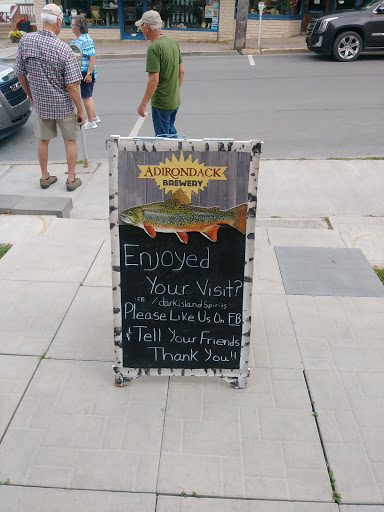 ADIRONDACK
BREWERY
Enjoyed
Your Visit?
FB /darkislandspirits
Please Like Us On FB
& Tell Your Friends
Thank You!!